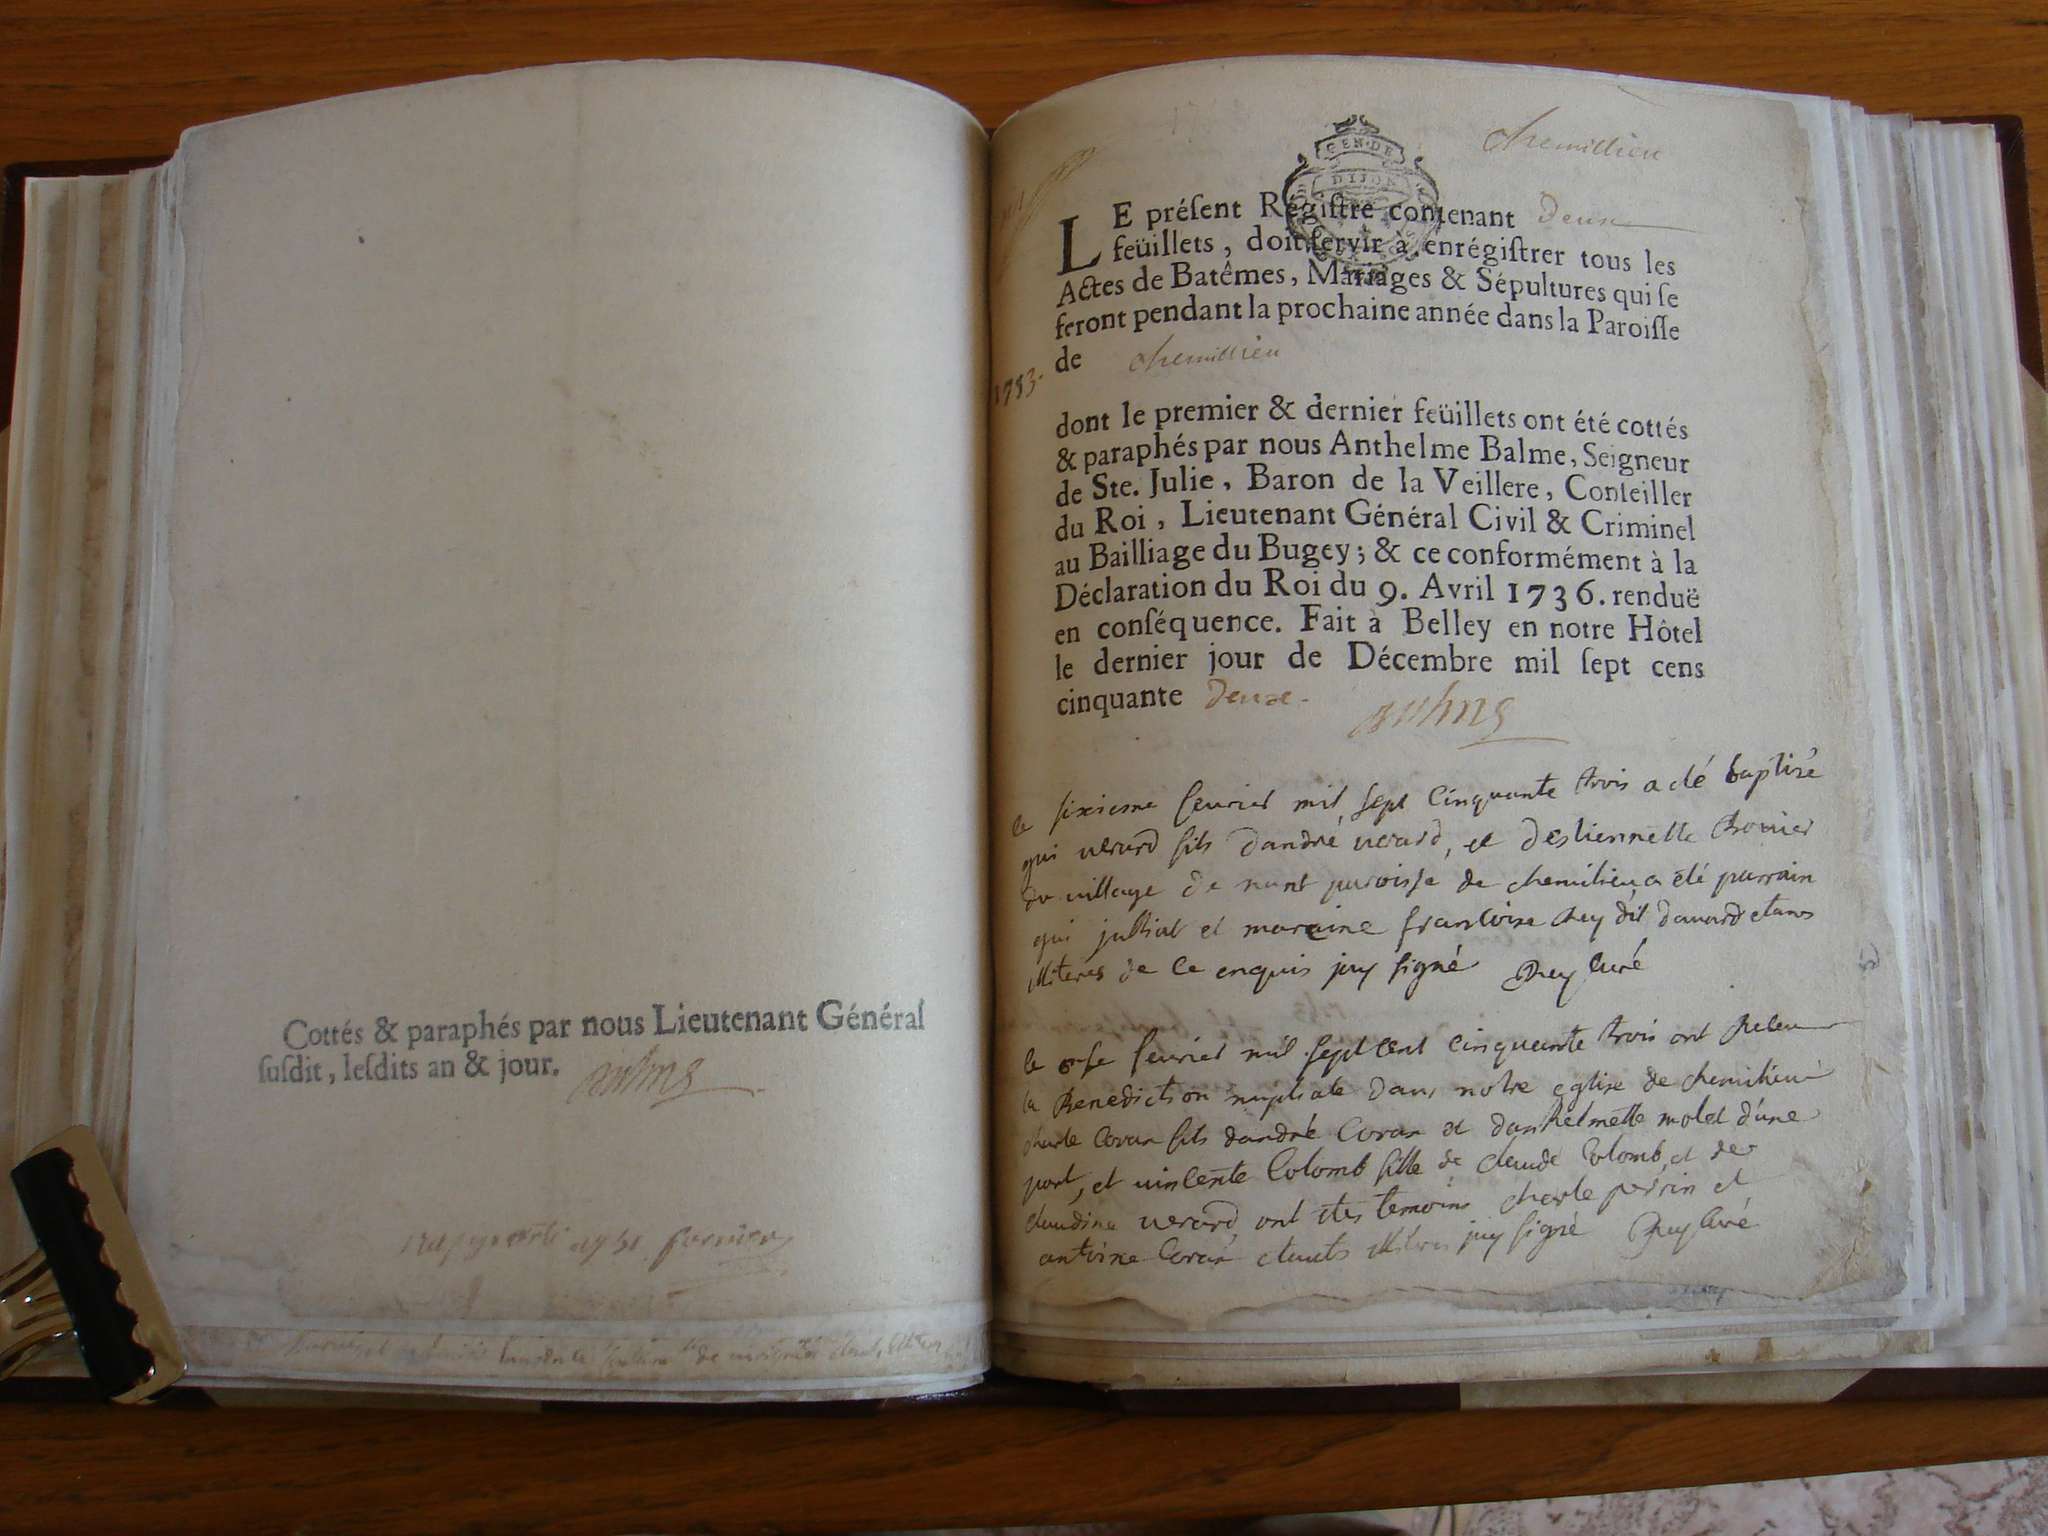 Cottés & paraphés par nous Lieutenant Général
ſuſdit, leſdits an & jour.
chemillieu
GEN·DE
DIJON
LE préſent Régiſtre contenant deux
feüillets, doit ſervir à enrégiſtrer tous les
Actes de Batêmes, Mariages & Sépultures qui ſe
feront pendant la prochaine année dans la Paroiſſe
de chemillieu
1753.
dont le premier & dernier feüillets ont été cottés
& paraphés par nous Anthelme Balme, Seigneur
de Ste. Julie, Baron de la Veillere, Conſeiller
du Roi, Lieutenant Général Civil & Criminel
au Bailliage du Bugey; & ce conformément à la
Déclaration du Roi du 9. Avril 1736. renduë
en conſéquence. Fait à Belley en notre Hôtel
le dernier jour de Décembre mil ſept cens
cinquante deux.
le sixieme fevrier mil sept cinquante trois a eté baptisé
gui verard fils dandré verard, et destiennette
du village de nant paroisse de chemilieu a eté parrain
gui julliat et maraine francoise Rey dit davard etans
illiteres de ce enquis jay signé Rey curé
le onse fevrier mil sept cent cinquante trois ont Receu
la Benediction nuptiale dans notre eglise de chemilieu
charle Coran fils dandré Coran et danthelmette molet d'une
part, et vincente Colomb fille de claude Colomb, et de
claudine verard, ont etes temoins charle perrin et
antoine Coran etants illitres jay signé Rey curé